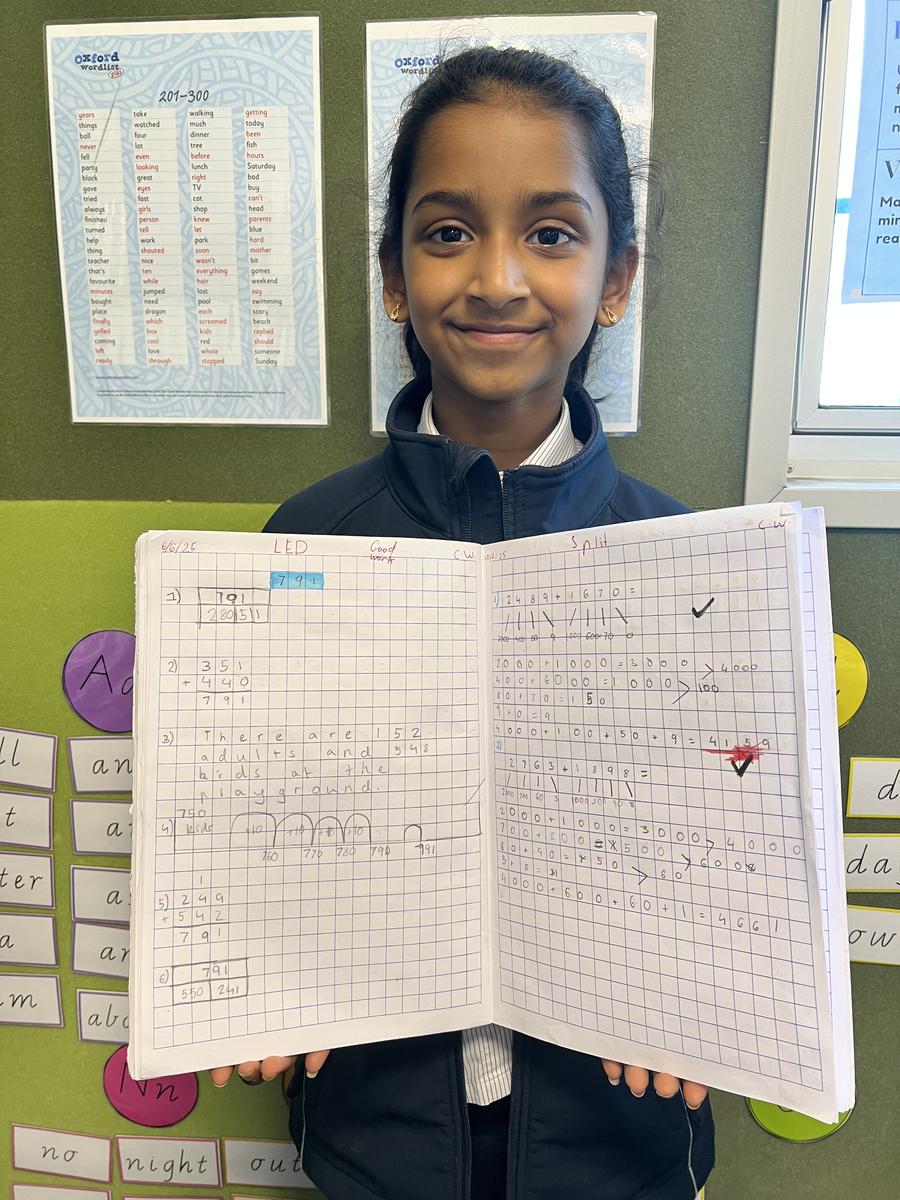 Oxford
wordlist
plus
201-300
years take walking getting
things watched much today
ball four dinner been
never lot tree fish
fell even before hours
party looking lunch Saturday
black great right bad
gave eyes TV buy
tried fast cat can't
always girls shop head
finished person knew parents
turned tell let blue
help work park hard
thing shouted soon mother
teacher nice wasn't bit
that's ten everything games
favourite while hair weekend
minutes jumped lost say
bought need pool swimming
place dragon each scary
finally which screamed beach
yelled box kids replied
coming cool red should
left love whole someone
ready through stopped Sunday
Oxford
wordlist
6/6/25 LED Good work C.W
791
1) 791
280 51
2) 351
+ 440
791
3) There are 152
adults and 548
birds at the
playground.
750
4) kids +10 +10 +10 +10
760 770 780 790 791
1
5) 249
+ 542
791
6) 791
550 241
Split C.W.
1) 2489+1670=
2000 400 80 9 1000 600 70 0
2000+1000=3000 > 4000
400+6000=1000 > 100
80+70=150
9+0=9
4000+100+50+9=4159
2)
2763+1898=
2000 700 60 3 1000 800 90 8
2000+1000=3000 > 4000
> 600
> 60
4000+600+60+1=4661
Nn
an
no
night
out
ll
t
ter
a
am
d
da
ow